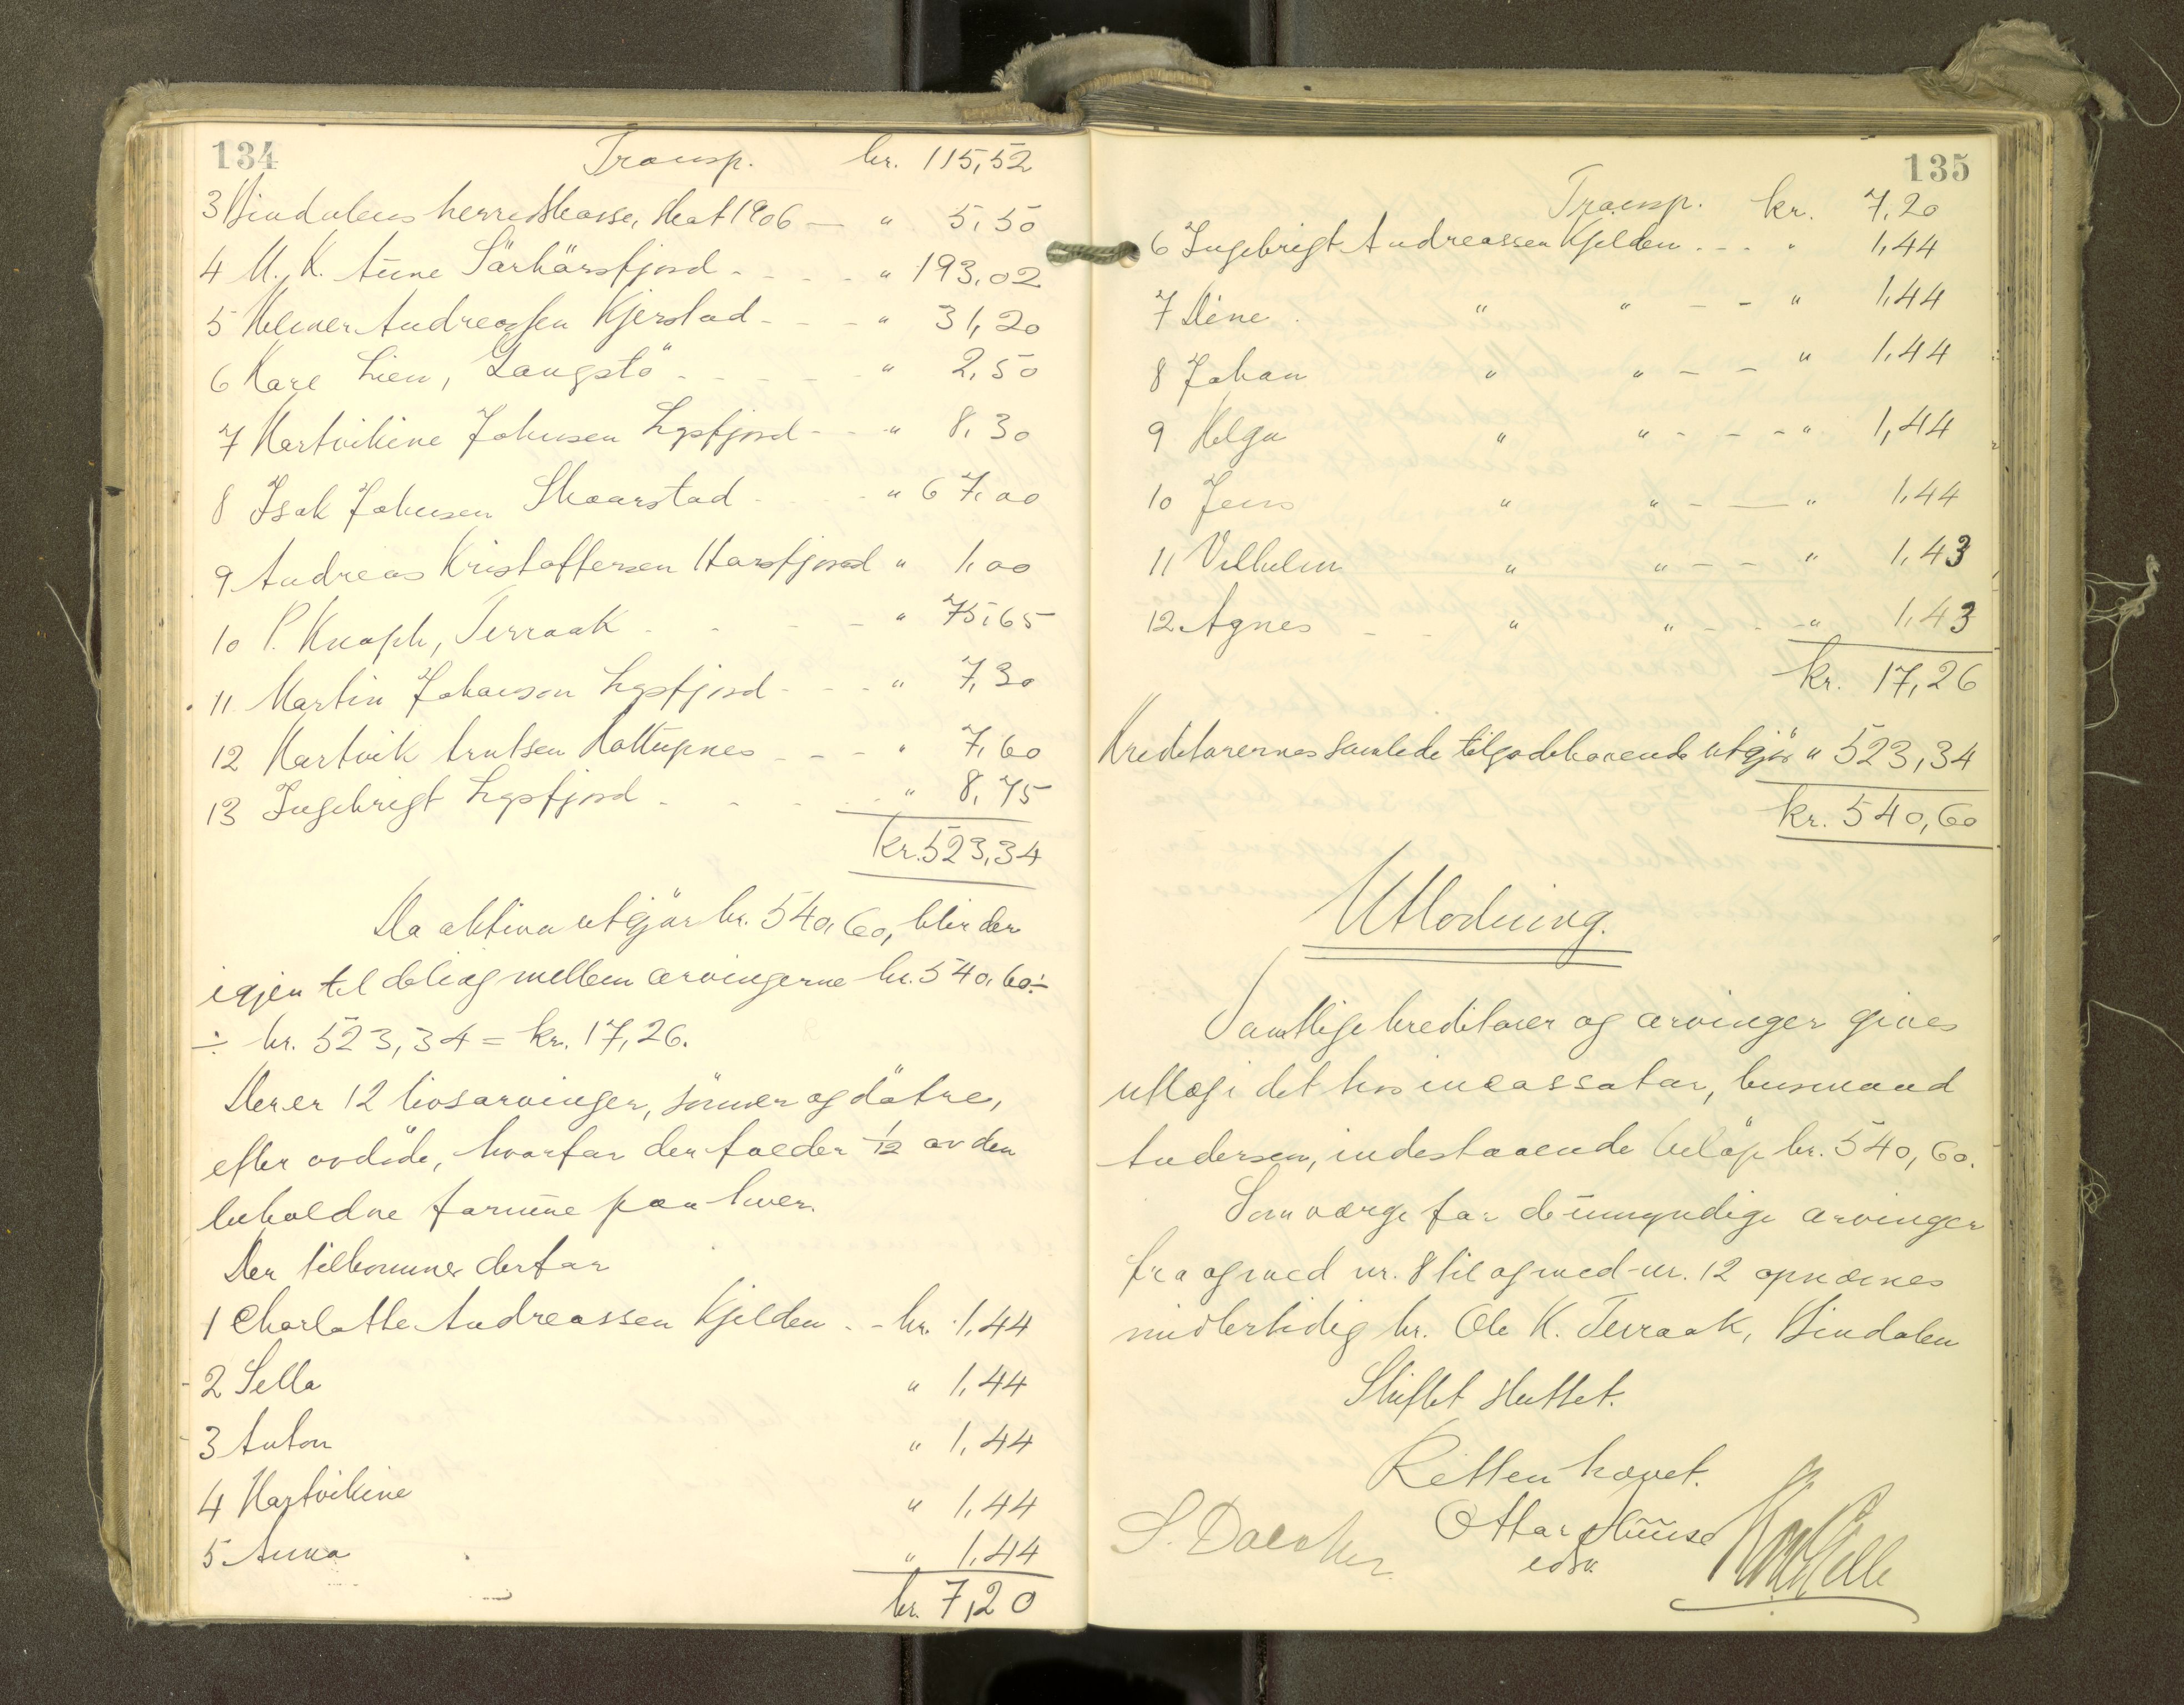 134
Transp. kr. 115,52
3 Bindalens herredskasse, skat 1906 — " 5,50
4 M. K. Aune Sörhörsfjord - - - - " 193,02
5 Helmer Andreassen Kjerstad - - - " 31,20
6 Karl Lien, Langstö - - - - - " 2,50
7 Hartvikine Johnsen Lysfjord - - - " 8,30
8 Isak Johnsen Skaarstad - - - " 67,00
9 Andreas Kristoffersen Horsfjord " 1,00
10 P. Knoph, Terraak - - - - " 75,65
11 Martin Johansen Lysfjord - - - " 7,30
12 Hartvik Arntsen - - - " 7,60
13 Ingebrigt Lysfjord - - - - " 8,75
kr. 523,34
Da aktiva utgjör kr. 540,60, blir der
igjen til deling mellem arvingerne kr. 540,60 ÷
÷ kr. 523,34 = kr. 17,26.
Der er 12 livsarvinger, sönner og dötre,
efter avdöde, hvorfor der falder 1/12 av den
beholdne formue paa hver.
Der tilkommer derfor
1 Charlotte Andreassen Kjelden - - kr. 1,44
2 Sella " 1,44
3 Anton " 1,44
4 Hartvikine " 1,44
5 Anna " 1,44
kr. 7,20
135
Transp. kr. 7,20
6 Ingebrigt Andreassen Kjelden - - - " 1,44
7 Dine " " - - " 1,44
8 Johan " " - - " 1,44
9 Helga " " - - - " 1,44
10 Jens " " - — " 1,44
11 Vilhelm " " - - " 1,43
12 Agnes - - " " - - - " 1,43
kr. 17,26
Kreditorernes samlede tilgodehavende utgjör " 523,34
kr. 540,60
Utlodning.
Samtlige kreditorer og arvinger gives
utlæg i det hos incassator, lensmand
Andersen, indestaaende belöp kr. 540,60.
Som værge for de umyndige arvinger
fra og med nr. 8 til og med nr. 12 opnævnes
midlertidig hr. Ole K. Terraak, Bindalen
Skiftet sluttet.
Retten hævet.
S. Ottar
edsv.